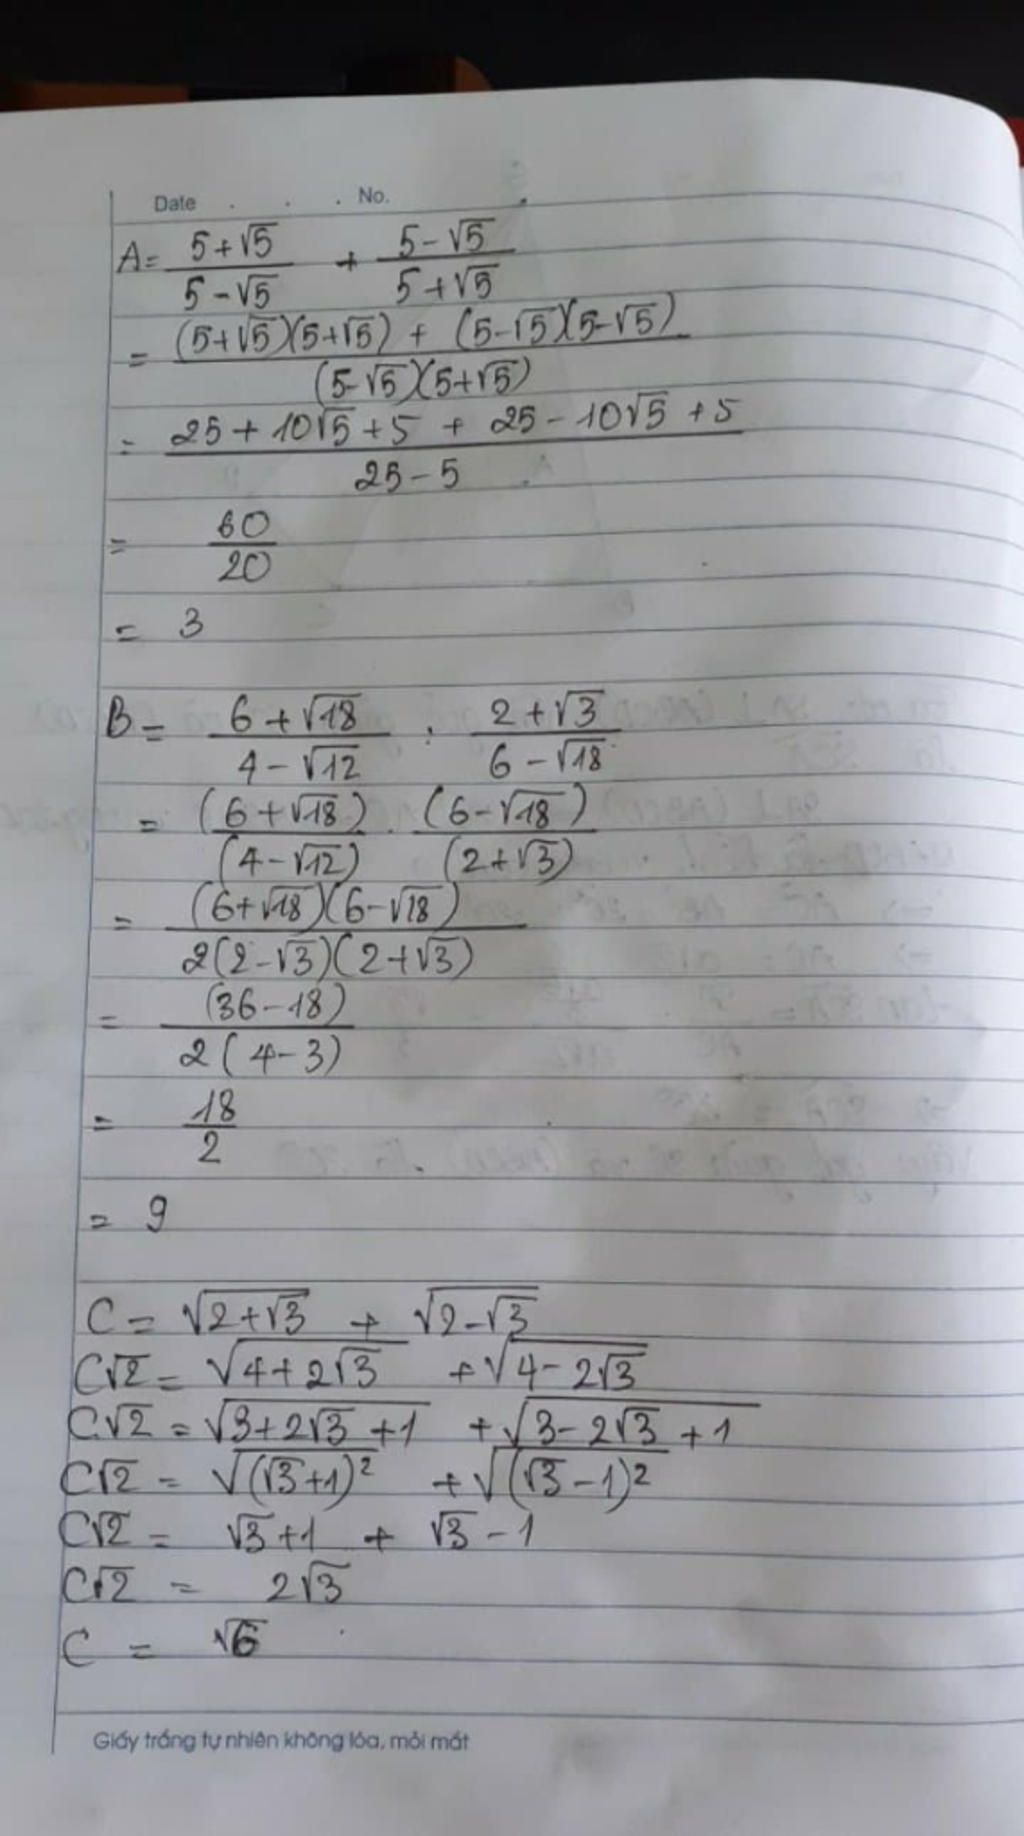 Date . . . No.
A = \frac{5+\sqrt{5}}{5-\sqrt{5}} + \frac{5-\sqrt{5}}{5+\sqrt{5}}
= \frac{(5+\sqrt{5})(5+\sqrt{5}) + (5-\sqrt{5})(5-\sqrt{5})}{(5-\sqrt{5})(5+\sqrt{5})}
= \frac{25+10\sqrt{5}+5 + 25-10\sqrt{5}+5}{25-5}
= \frac{60}{20}
= 3
B = \frac{6+\sqrt{18}}{4-\sqrt{12}} : \frac{2+\sqrt{3}}{6-\sqrt{18}}
= \frac{(6+\sqrt{18})}{(4-\sqrt{12})} . \frac{(6-\sqrt{18})}{(2+\sqrt{3})}
= \frac{(6+\sqrt{18})(6-\sqrt{18})}{2(2-\sqrt{3})(2+\sqrt{3})}
= \frac{(36-18)}{2(4-3)}
= \frac{18}{2}
= 9
C = \sqrt{2+\sqrt{3}} + \sqrt{2-\sqrt{3}}
C\sqrt{2} = \sqrt{4+2\sqrt{3}} + \sqrt{4-2\sqrt{3}}
C\sqrt{2} = \sqrt{3+2\sqrt{3}+1} + \sqrt{3-2\sqrt{3}+1}
C\sqrt{2} = \sqrt{(\sqrt{3}+1)^2} + \sqrt{(\sqrt{3}-1)^2}
C\sqrt{2} = \sqrt{3}+1 + \sqrt{3}-1
C\sqrt{2} = 2\sqrt{3}
C = \sqrt{6}
Giấy trắng tự nhiên không lóa, mỏi mắt